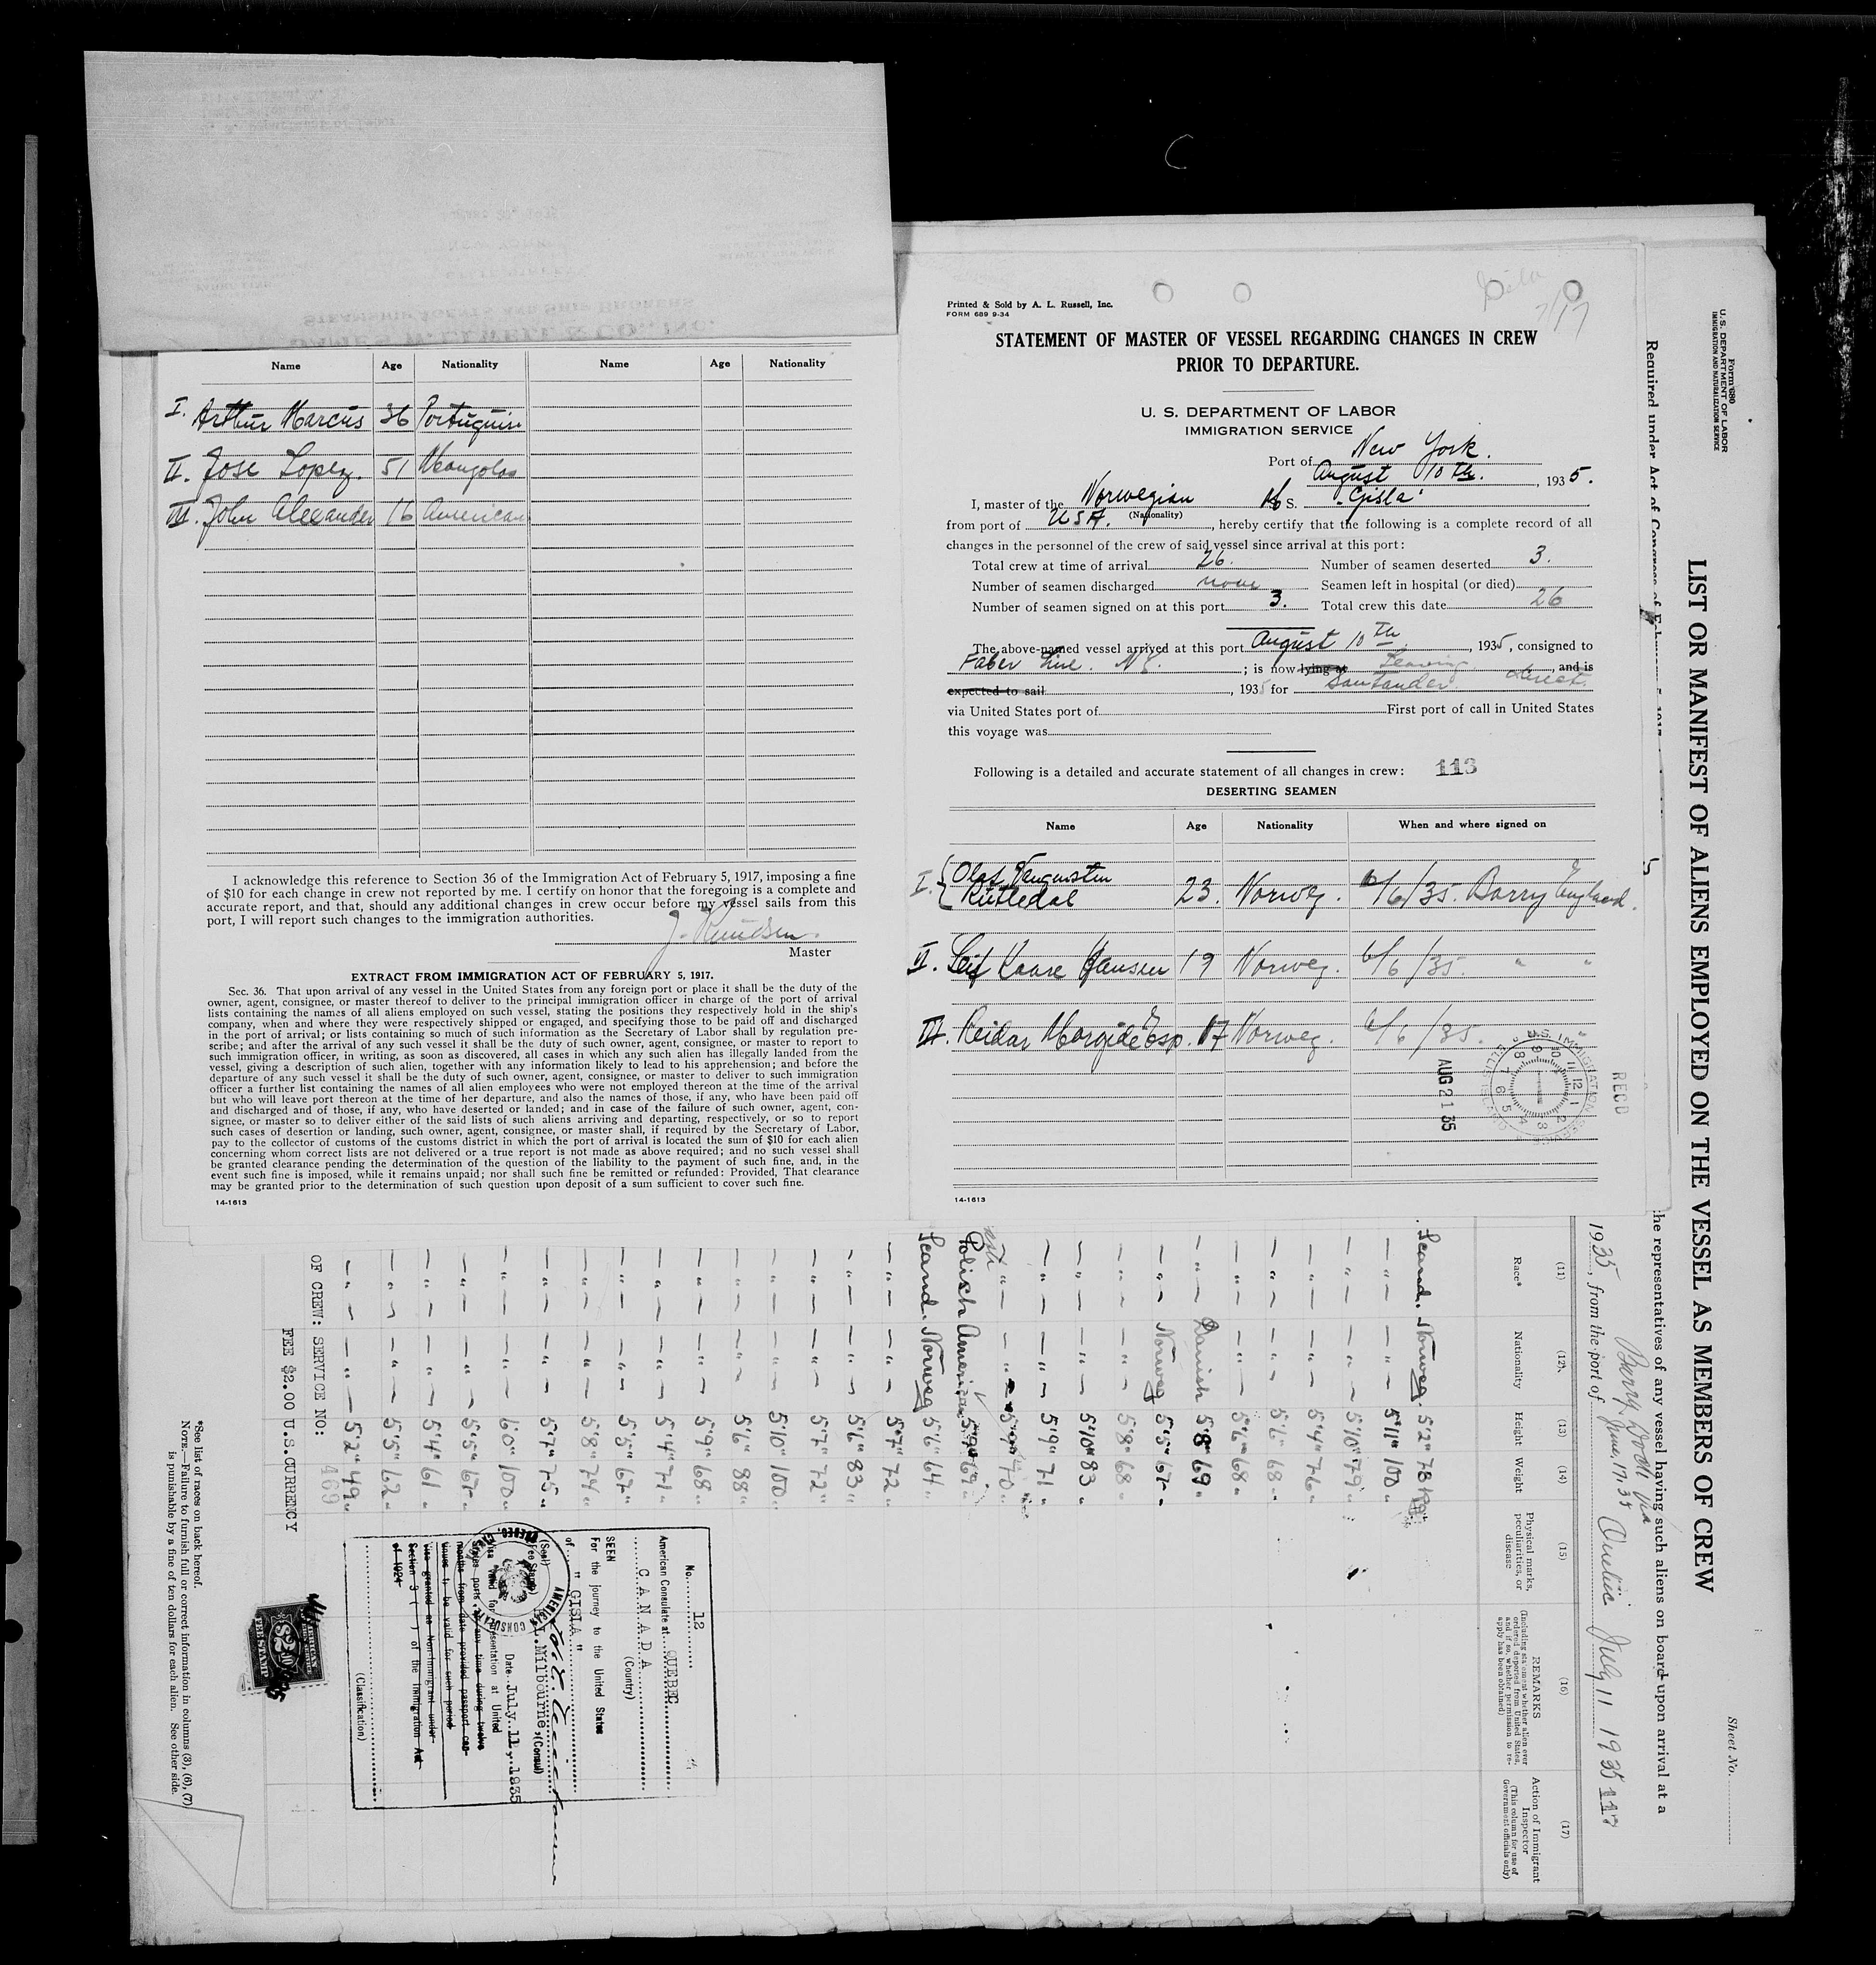 Name Age Nationality Name Age Nationality
I. Arthur Marcus 36
II. Jose Lopez. 51
III. John Alexander 16 American
I acknowledge this reference to Section 36 of the Immigration Act of February 5, 1917, imposing a fine
of $10 for each change in crew not reported by me. I certify on honor that the foregoing is a complete and
accurate report, and that, should any additional changes in crew occur before my vessel sails from this
port, I will report such changes to the immigration authorities.
J. Knudsen
Master
EXTRACT FROM IMMIGRATION ACT OF FEBRUARY 5, 1917.
Sec. 36. That upon arrival of any vessel in the United States from any foreign port or place it shall be the duty of the
owner, agent, consignee, or master thereof to deliver to the principal immigration officer in charge of the port of arrival
lists containing the names of all aliens employed on such vessel, stating the positions they respectively hold in the ship's
company, when and where they were respectively shipped or engaged, and specifying those to be paid off and discharged
in the port of arrival; or lists containing so much of such information as the Secretary of Labor shall by regulation pre-
scribe; and after the arrival of any such vessel it shall be the duty of such owner, agent, consignee, or master to report to
such immigration officer, in writing, as soon as discovered, all cases in which any such alien has illegally landed from the
vessel, giving a description of such alien, together with any information likely to lead to his apprehension; and before the
departure of any such vessel it shall be the duty of such owner, agent, consignee, or master to deliver to such immigration
officer a further list containing the names of all alien employees who were not employed thereon at the time of the arrival
but who will leave port thereon at the time of her departure, and also the names of those, if any, who have been paid off
and discharged and of those, if any, who have deserted or landed; and in case of the failure of such owner, agent, con-
signee, or master so to deliver either of the said lists of such aliens arriving and departing, respectively, or so to report
such cases of desertion or landing, such owner, agent, consignee, or master shall, if required by the Secretary of Labor,
pay to the collector of customs of the customs district in which the port of arrival is located the sum of $10 for each alien
concerning whom correct lists are not delivered or a true report is not made as above required; and no such vessel shall
be granted clearance pending the determination of the question of the liability to the payment of such fine, and, in the
event such fine is imposed, while it remains unpaid; nor shall such fine be remitted or refunded: Provided, That clearance
may be granted prior to the determination of such question upon deposit of a sum sufficient to cover such fine.
14-1613
Gisla
7/17
Printed & Sold by A. L. Russell, Inc.
FORM 689 9-34
STATEMENT OF MASTER OF VESSEL REGARDING CHANGES IN CREW
PRIOR TO DEPARTURE.
U. S. DEPARTMENT OF LABOR
IMMIGRATION SERVICE
Port of New York.
August 10th., 1935.
I, master of the Norwegian S. "Gisla"
(Nationality)
from port of USA., hereby certify that the following is a complete record of all
changes in the personnel of the crew of said vessel since arrival at this port:
Total crew at time of arrival 26. Number of seamen deserted 3.
Number of seamen discharged none Seamen left in hospital (or died)
Number of seamen signed on at this port 3. Total crew this date 26
The above-named vessel arrived at this port August 10th, 1935, consigned to
Faber Line. NY.; is now lying at Leaving, and is
expected to sail, 1935 for Santander direct.
via United States port of First port of call in United States
this voyage was
Following is a detailed and accurate statement of all changes in crew: 113
DESERTING SEAMEN
Name Age Nationality When and where signed on
I. Olaf
Rutledal 23. Norweg. 6/6/35. Barry England.
II. Leif Kaare Hansen 19 Norweg. 6/6/35. " "
III. Reidar 17 Norweg. 6/6/35. "
U.S. IMMIGRATION SERVICE ELLIS ISLAND
AUG 21 35
RECD
14-1613
Form 680
U. S. DEPARTMENT OF LABOR
IMMIGRATION AND NATURALIZATION SERVICE
Sheet No.
LIST OR MANIFEST OF ALIENS EMPLOYED ON THE VESSEL AS MEMBERS OF CREW
Required under Act of Congress of February 5, 1917
the representatives of any vessel having such aliens on board upon arrival at a
1935, from the port of Quebec July 11 1935
June 17. 35
(11) (12) (13) (14) (15) (16) (17)
Race* Nationality Height Weight
Physical marks, peculiarities, or disease
REMARKS
(Including statement whether alien ever ordered deported from United States, and if so, whether permission to re-apply has been obtained)
Action of Immigrant Inspector
(This column for use of Government officials only)
Scand. Norweg. 5'2" 73 Kg.
" " 5'11" 100 "
" " 5'10" 79 "
" " 5'4" 76 "
" " 5'6" 68 "
" " 5'6" 68 "
" Danish 5'8" 69 "
" Norweg 5'5" 67 "
" " 5'8" 68 "
" " 5'10" 83 "
" " 5'9" 71 "
" " 5'9" 70 "
Polish American 5'9" 69 "
Scand. Norweg 5'6" 64 "
" " 5'7" 72 "
" " 5'6" 83 "
" " 5'7" 72 "
" " 5'10" 100 "
" " 5'6" 88 "
" " 5'9" 68 "
" " 5'4" 71 "
" " 5'5" 67 "
" " 5'8" 74 "
" " 5'7" 75 "
" " 6'0" 100 "
" " 5'5" 67 "
" " 5'4" 61 "
" " 5'5" 62 "
" " 5'2" 49 "
OF CREW: SERVICE NO: 469
FEE $2.00 U.S.CURRENCY
No. 12
American Consulate at QUEBEC
CANADA
(Country)
SEEN
For the journey to the United States
of "GISLA"
(Consul)
Date July 11, 1935
Section 3 ( ) of the Immigration Act
of 1924
(Classification)
AMERICAN CONSULATE QUEBEC
AMERICAN
$2.00
FEE STAMP
*See list of races on back hereof.
NOTE.—Failure to furnish full or correct information in columns (3), (6), (7)
is punishable by a fine of ten dollars for each alien. See other side.